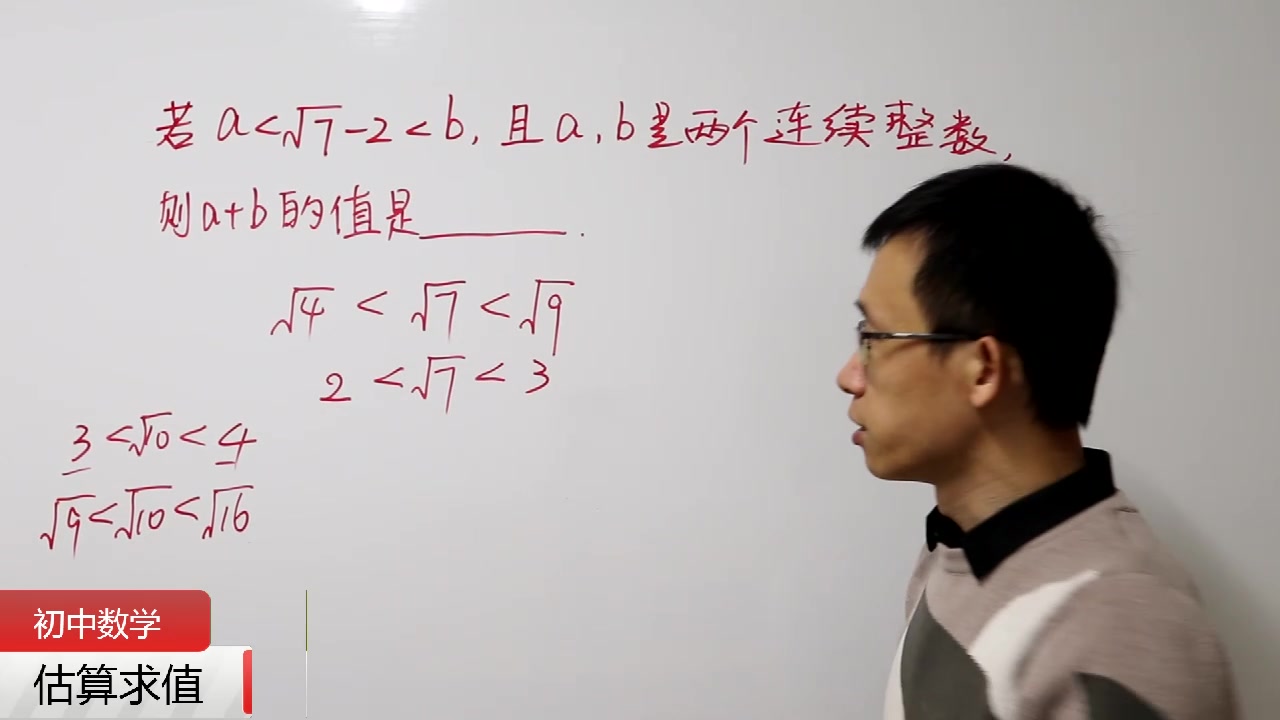 若 a<√7-2<b, 且 a, b 是两个连续整数,
则 a+b 的值是______.
√4 < √7 < √9
2 < √7 < 3
3 < √10 < 4
√9 < √10 < √16
初中数学
估算求值